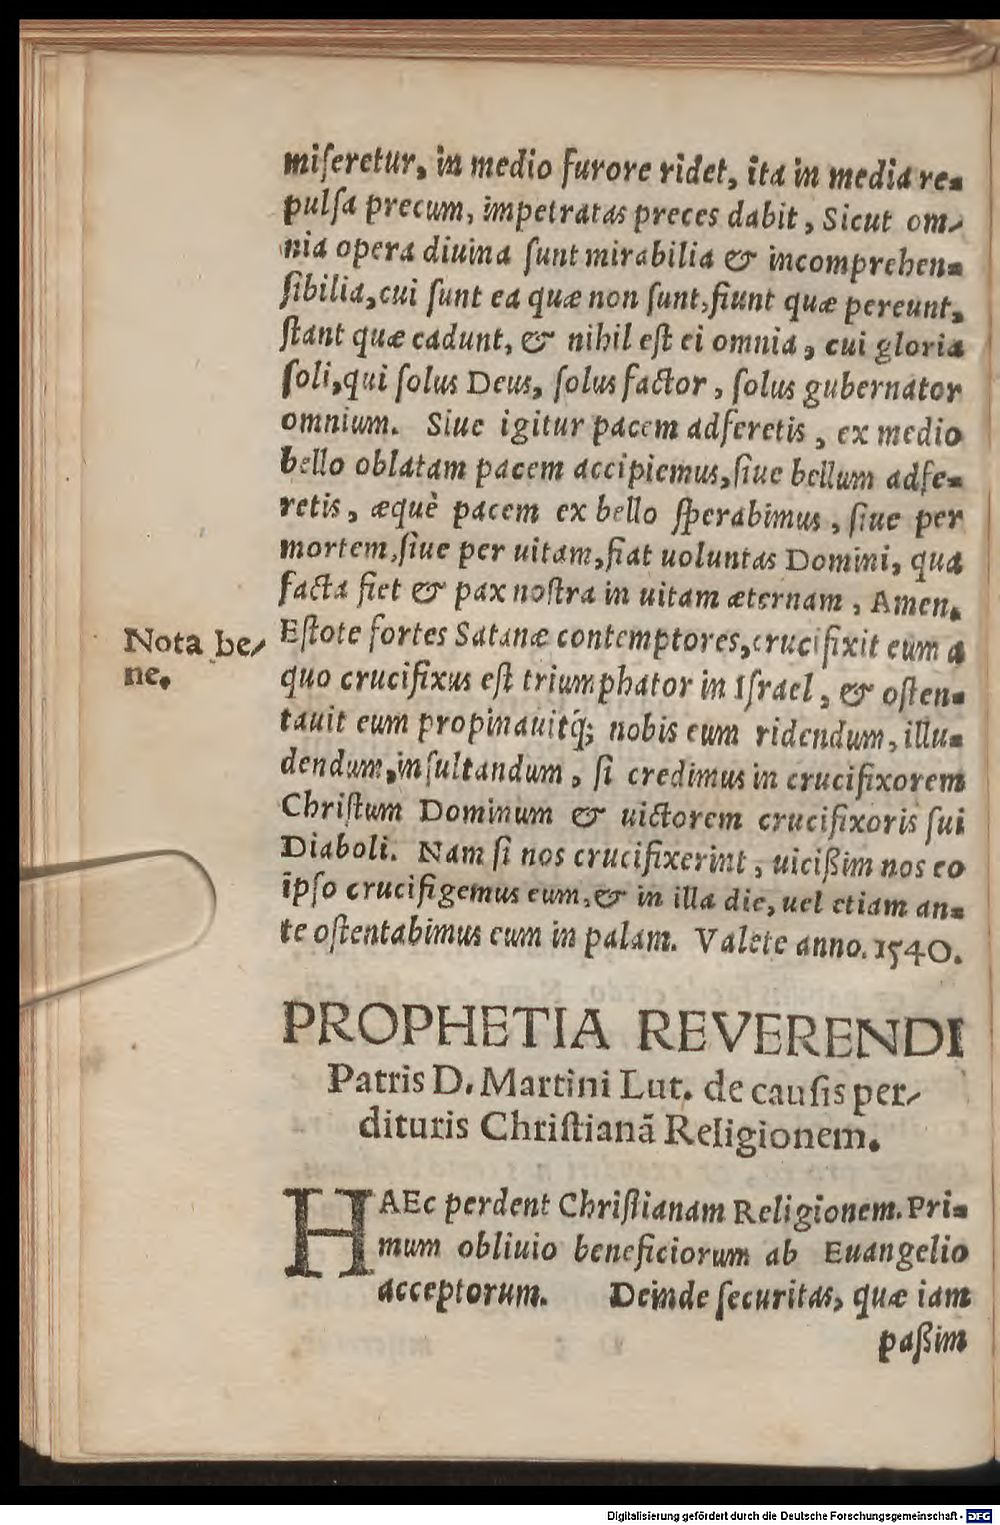 miſeretur, in medio furore ridet, ita in media re-
pulſa precum, impetratas preces dabit, Sicut om-
nia opera diuina ſunt mirabilia & incomprehen-
ſibilia, cui ſunt ea quæ non ſunt, fiunt quæ pereunt,
ſtant quæ cadunt, & nihil eſt ei omnia, cui gloria
ſoli, qui ſolus Deus, ſolus factor, ſolus gubernator
omnium. Siue igitur pacem adferetis, ex medio
bello oblatam pacem accipiemus, ſiue bellum adfe-
retis, æquè pacem ex bello ſperabimus, ſiue per
mortem, ſiue per uitam, fiat uoluntas Domini, qua
facta fiet & pax noſtra in uitam æternam, Amen.
Nota be-
ne.
Eſtote fortes Satanæ contemptores, crucifixit eum a
quo crucifixus eſt triumphator in Iſrael, & oſten-
tauit eum propinauitq́; nobis eum ridendum, illu-
dendum, inſultandum, ſi credimus in crucifixorem
Chriſtum Dominum & uictorem crucifixoris ſui
Diaboli. Nam ſi nos crucifixerint, uicißim nos eo
ipſo crucifigemus eum, & in illa die, uel etiam an-
te oſtentabimus eum in palam. Valete anno. 1540.
PROPHETIA REVERENDI
Patris D. Martini Lut. de cauſis per-
dituris Chriſtianã Religionem.
HAEc perdent Chriſtianam Religionem. Pri-
mum obliuio beneficiorum ab Euangelio
acceptorum. Deinde ſecuritas, quæ iam
paßim
Digitalisierung gefördert durch die Deutsche Forschungsgemeinschaft - DFG